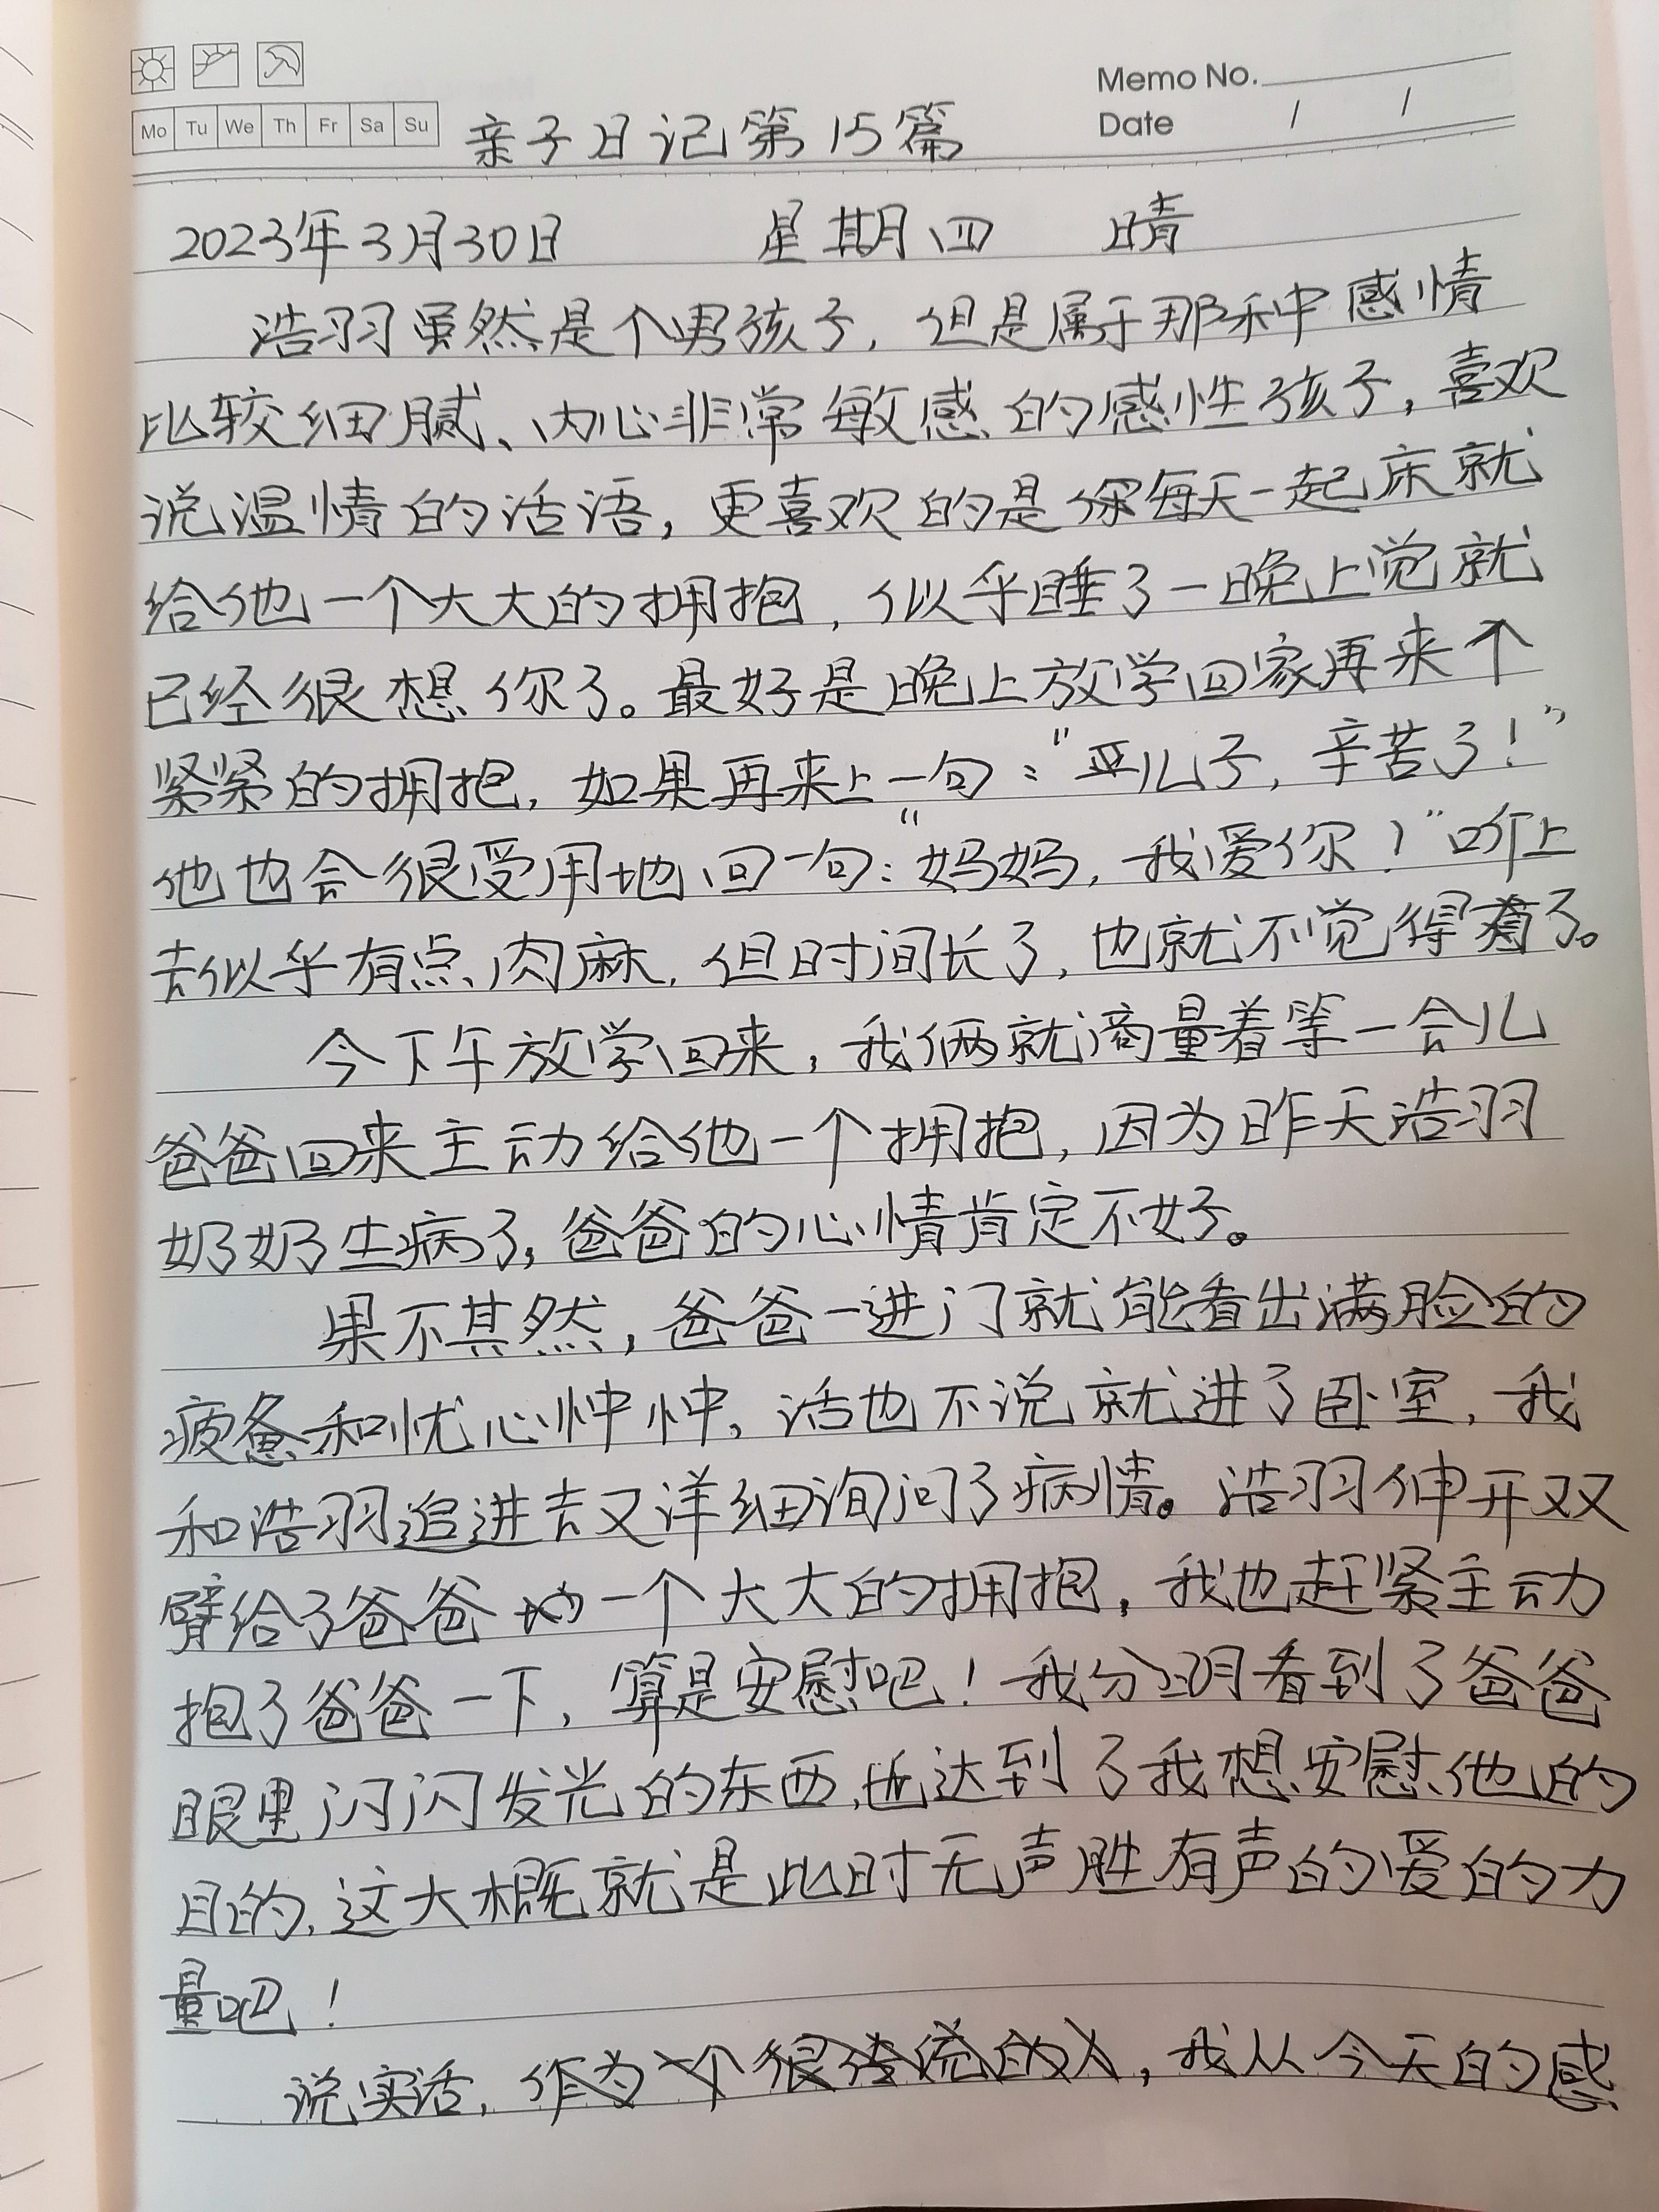 Memo No.
Mo Tu We Th Fr Sa Su
Date / /
亲子日记第15篇
2023年3月30日 星期四 晴
浩羽虽然是个男孩子,但是属于那种感情
比较细腻、内心非常敏感的感性孩子,喜欢
说温情的话语,更喜欢的是你每天一起床就
给他一个大大的拥抱,似乎睡了一晚上觉就
已经很想你了。最好是晚上放学回家再来个
紧紧的拥抱,如果再来上一句:“亚儿子,辛苦了!”
他也会很受用地回一句:“妈妈,我爱你!”听上
去似乎有点肉麻,但时间长了,也就不觉得了。
今下午放学回来,我俩就商量着等一会儿
爸爸回来主动给他一个拥抱,因为昨天浩羽
奶奶生病了,爸爸的心情肯定不好。
果不其然,爸爸一进门就能看出满脸的
疲惫和忧心忡忡,话也不说就进了卧室,我
和浩羽追进去又详细询问了病情。浩羽伸开双
臂给了爸爸一个大大的拥抱,我也赶紧主动
抱了爸爸一下,算是安慰吧!我分明看到了爸爸
眼里闪闪发光的东西,也达到了我想安慰他的
目的,这大概就是此时无声胜有声的爱的力
量吧!
说实话,作为一个很传统的人,我从今天的感